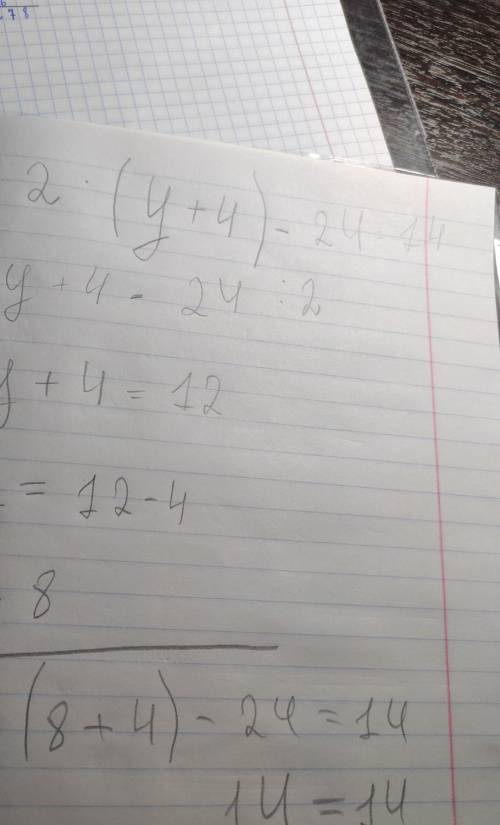 78
2 · (y + 4) - 24 = 14
y + 4 = 24 : 2
y + 4 = 12
= 12 - 4
8
(8 + 4) - 24 = 14
14 = 14